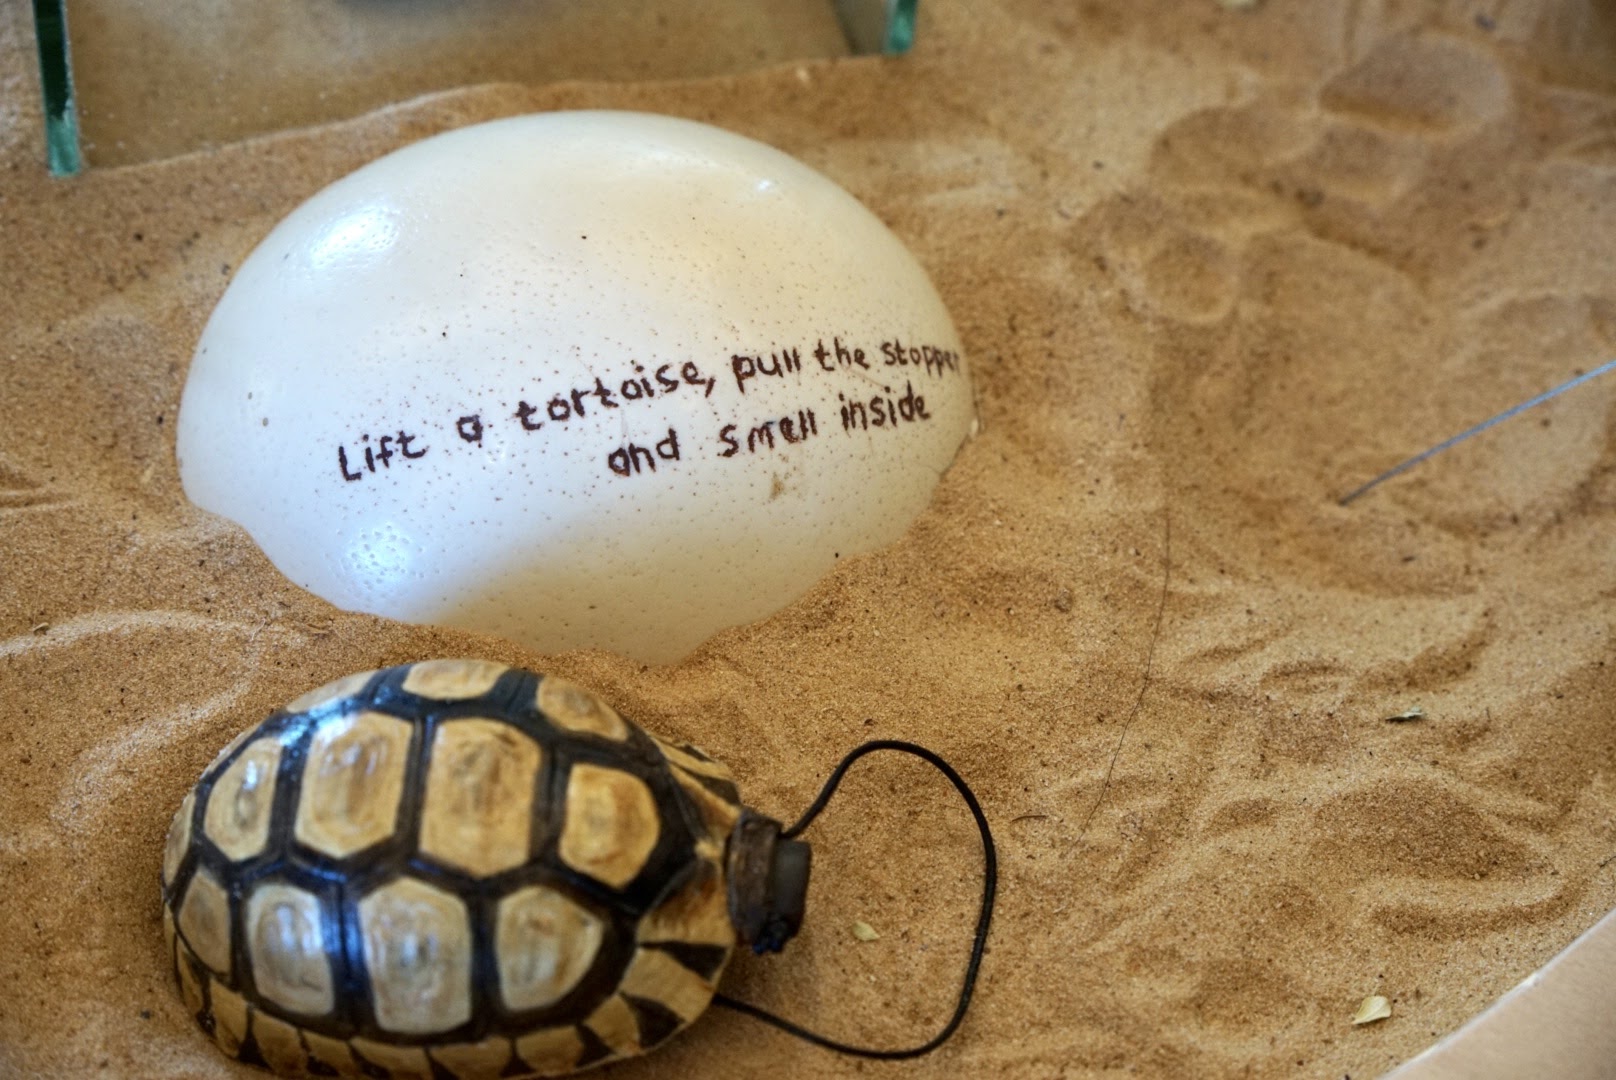 Lift a tortoise, pull the stopper
and smell inside